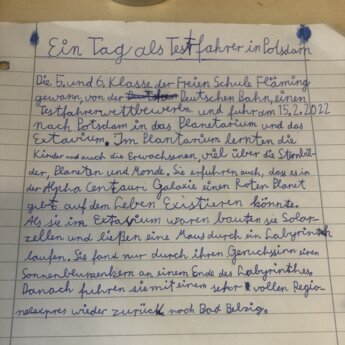 Ein Tag als Testfahrer in Potsdam
Die 5. und 6. Klasse der Freien Schule Fläming
gewann, von der Deutschen Bahn, einen
Testfahrerwettbewerb und fuhr am 15.2.2022
nach Potsdam in das Planetarium und das
Extavium. Im Plantarium lernten die
Kinder und auch die Erwachsenen, viel über die Sternbil-
der, Planeten und Monde. Sie erfuhren auch, das es in
der Alpha Centauri Galaxie einen Roten Planet
gebt auf dem Leben Existieren könnte.
Als sie im Extavium waren bauten sie Solar-
zellen und ließen eine Maus durch ein Labyrinth
laufen. Sie fand nur durch ihren Geruchssinn einen
Sonnenblumenkern an einem Ende des Labyrinthes.
Danach fuhren sie mit einem sehr vollen Regio
nalexpres wieder zurück nach Bad Belzig.